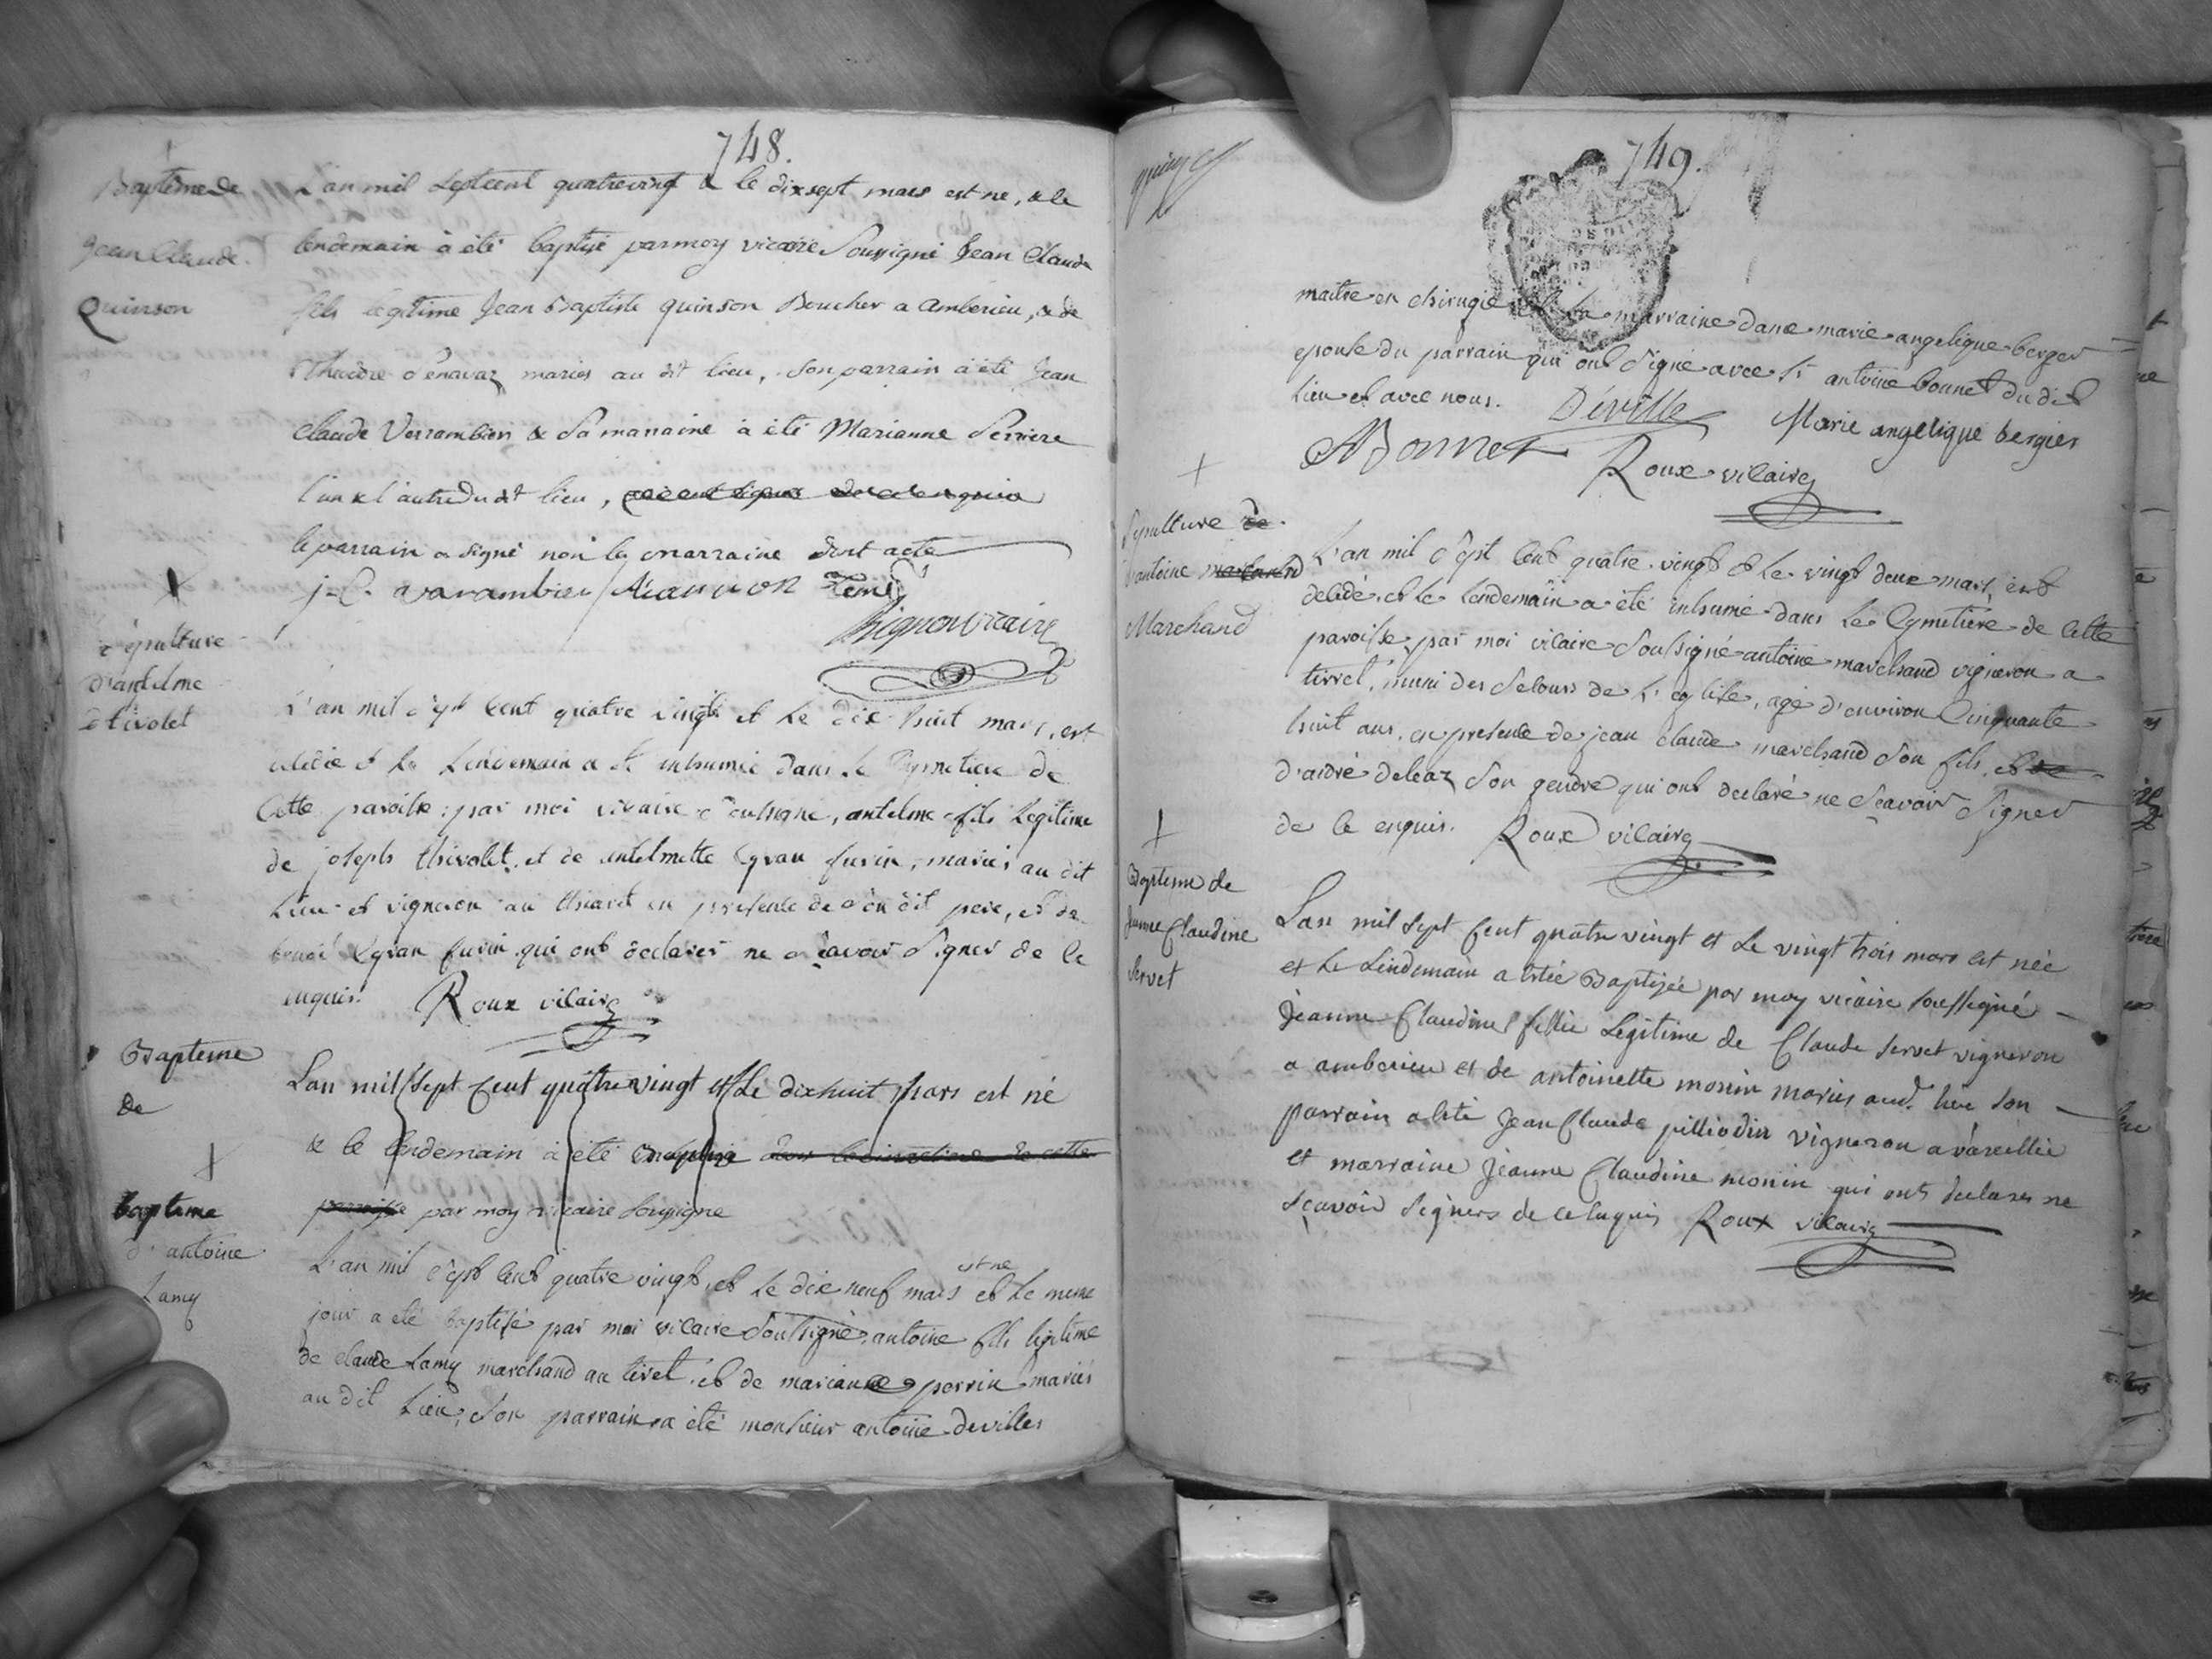 748.
Baptême de
Jean Claude
Quinson
L'an mil septcent quatrevingt & le dixsept mars est né, & le
lendemain à été baptisé par moy vicaire Soussigné Jean Claude
fils légitime Jean Baptiste quinson Boucher a Amberieu, & de
maries au dt lieu, son parrain à été Jean
Claude Varrambier & Sa marraine à été Marianne Perriere
l'un & l'autre du dt lieu,
le parrain a signé non la marraine dont acte
j. C. avarambier
vicaire
sépulture
d'antelme
thivolet
L'an mil sept cent quatre vingts et le dix huit mars, est
décédé et le lendemain a été inhumé dans le Cymetiere de
cette paroisse par moi vicaire soussigné, antelme fils légitime
de joseph thivolet et de antelmette gran furin, mariés au dit
lieu et vigneron au tiret en présence de son dit pere, et de
gran furin qui ont déclarés ne sçavoir signer de ce
enquis. Roux vicaire
Bapteme
de
Lan mil sept Cent quatre vingt et Le dixhuit Mars est né
& le lendemain à été baptisé dans le cimetiere de cette
paroisse par moy vicaire soussigné
bapteme
d'antoine
Lamy
L'an mil sept cent quatre vingt et le dix neuf mars est né et le meme
jour a été baptisé par moi vicaire soussigné, antoine fils légitime
de claude Lamy marchand au tiret, et de marianne perrin mariés
au dit Lieu, son parrain a été monsieur antoine devilles
749.
maitre en chirugie et la marraine dame marie angelique berger
epouse du parrain qui ont signé avec Sr antoine bonnet du dit
Lieu et avec nous. Deville Marie angelique bergier
ABonnet Roux vicaire
Sépulture de
d'antoine marchand
Marchand
L'an mil sept cent quatre vingt et le vingt deux mars, est
décédé et le lendemain a été inhumé dans le Cymetiere de cette
paroisse, par moi vicaire soussigné antoine marchand vigneron a
tirret, muni des secours de l'eglise, agé d'environ cinquante
huit ans, en presence de jean claude marchand son fils, et de
d'andré deleaz son gendre qui ont declaré ne sçavoir signer
de ce enquis. Roux vicaire
Baptesme de
Jeanne Claudine
Servet
Lan mil sept Cent quatre vingt et Le vingt trois mars est née
et Le Lendemain a estée Baptizée par moy vicaire soussigné
Jeanne Claudine fillie Legitime de Claude servet vigneron
a amberieu et de antoinette monin mariés aud. lieu son
parrain a esté Jean Claude pilliodin vigneron a vareillie
et marraine Jeanne Claudine monin qui ont declares ne
sçavoir signers de ce enquis Roux vicaire